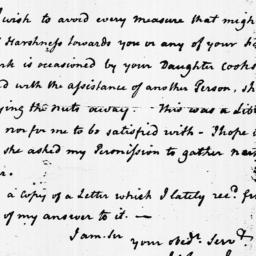 wish to avoid every measure that migh
Harshness towards you or any of your
rk is occasioned by your Daughter
d with the assistance of another Person, sh
ying the Nuts away. This was a Lib
nor for me to be satisfied with - I hope i
she asked my Permission to gather
r.
a Copy of a Letter which I lately recd. fr
of my answer to it. —
I am Sir
your obedt. Servt.